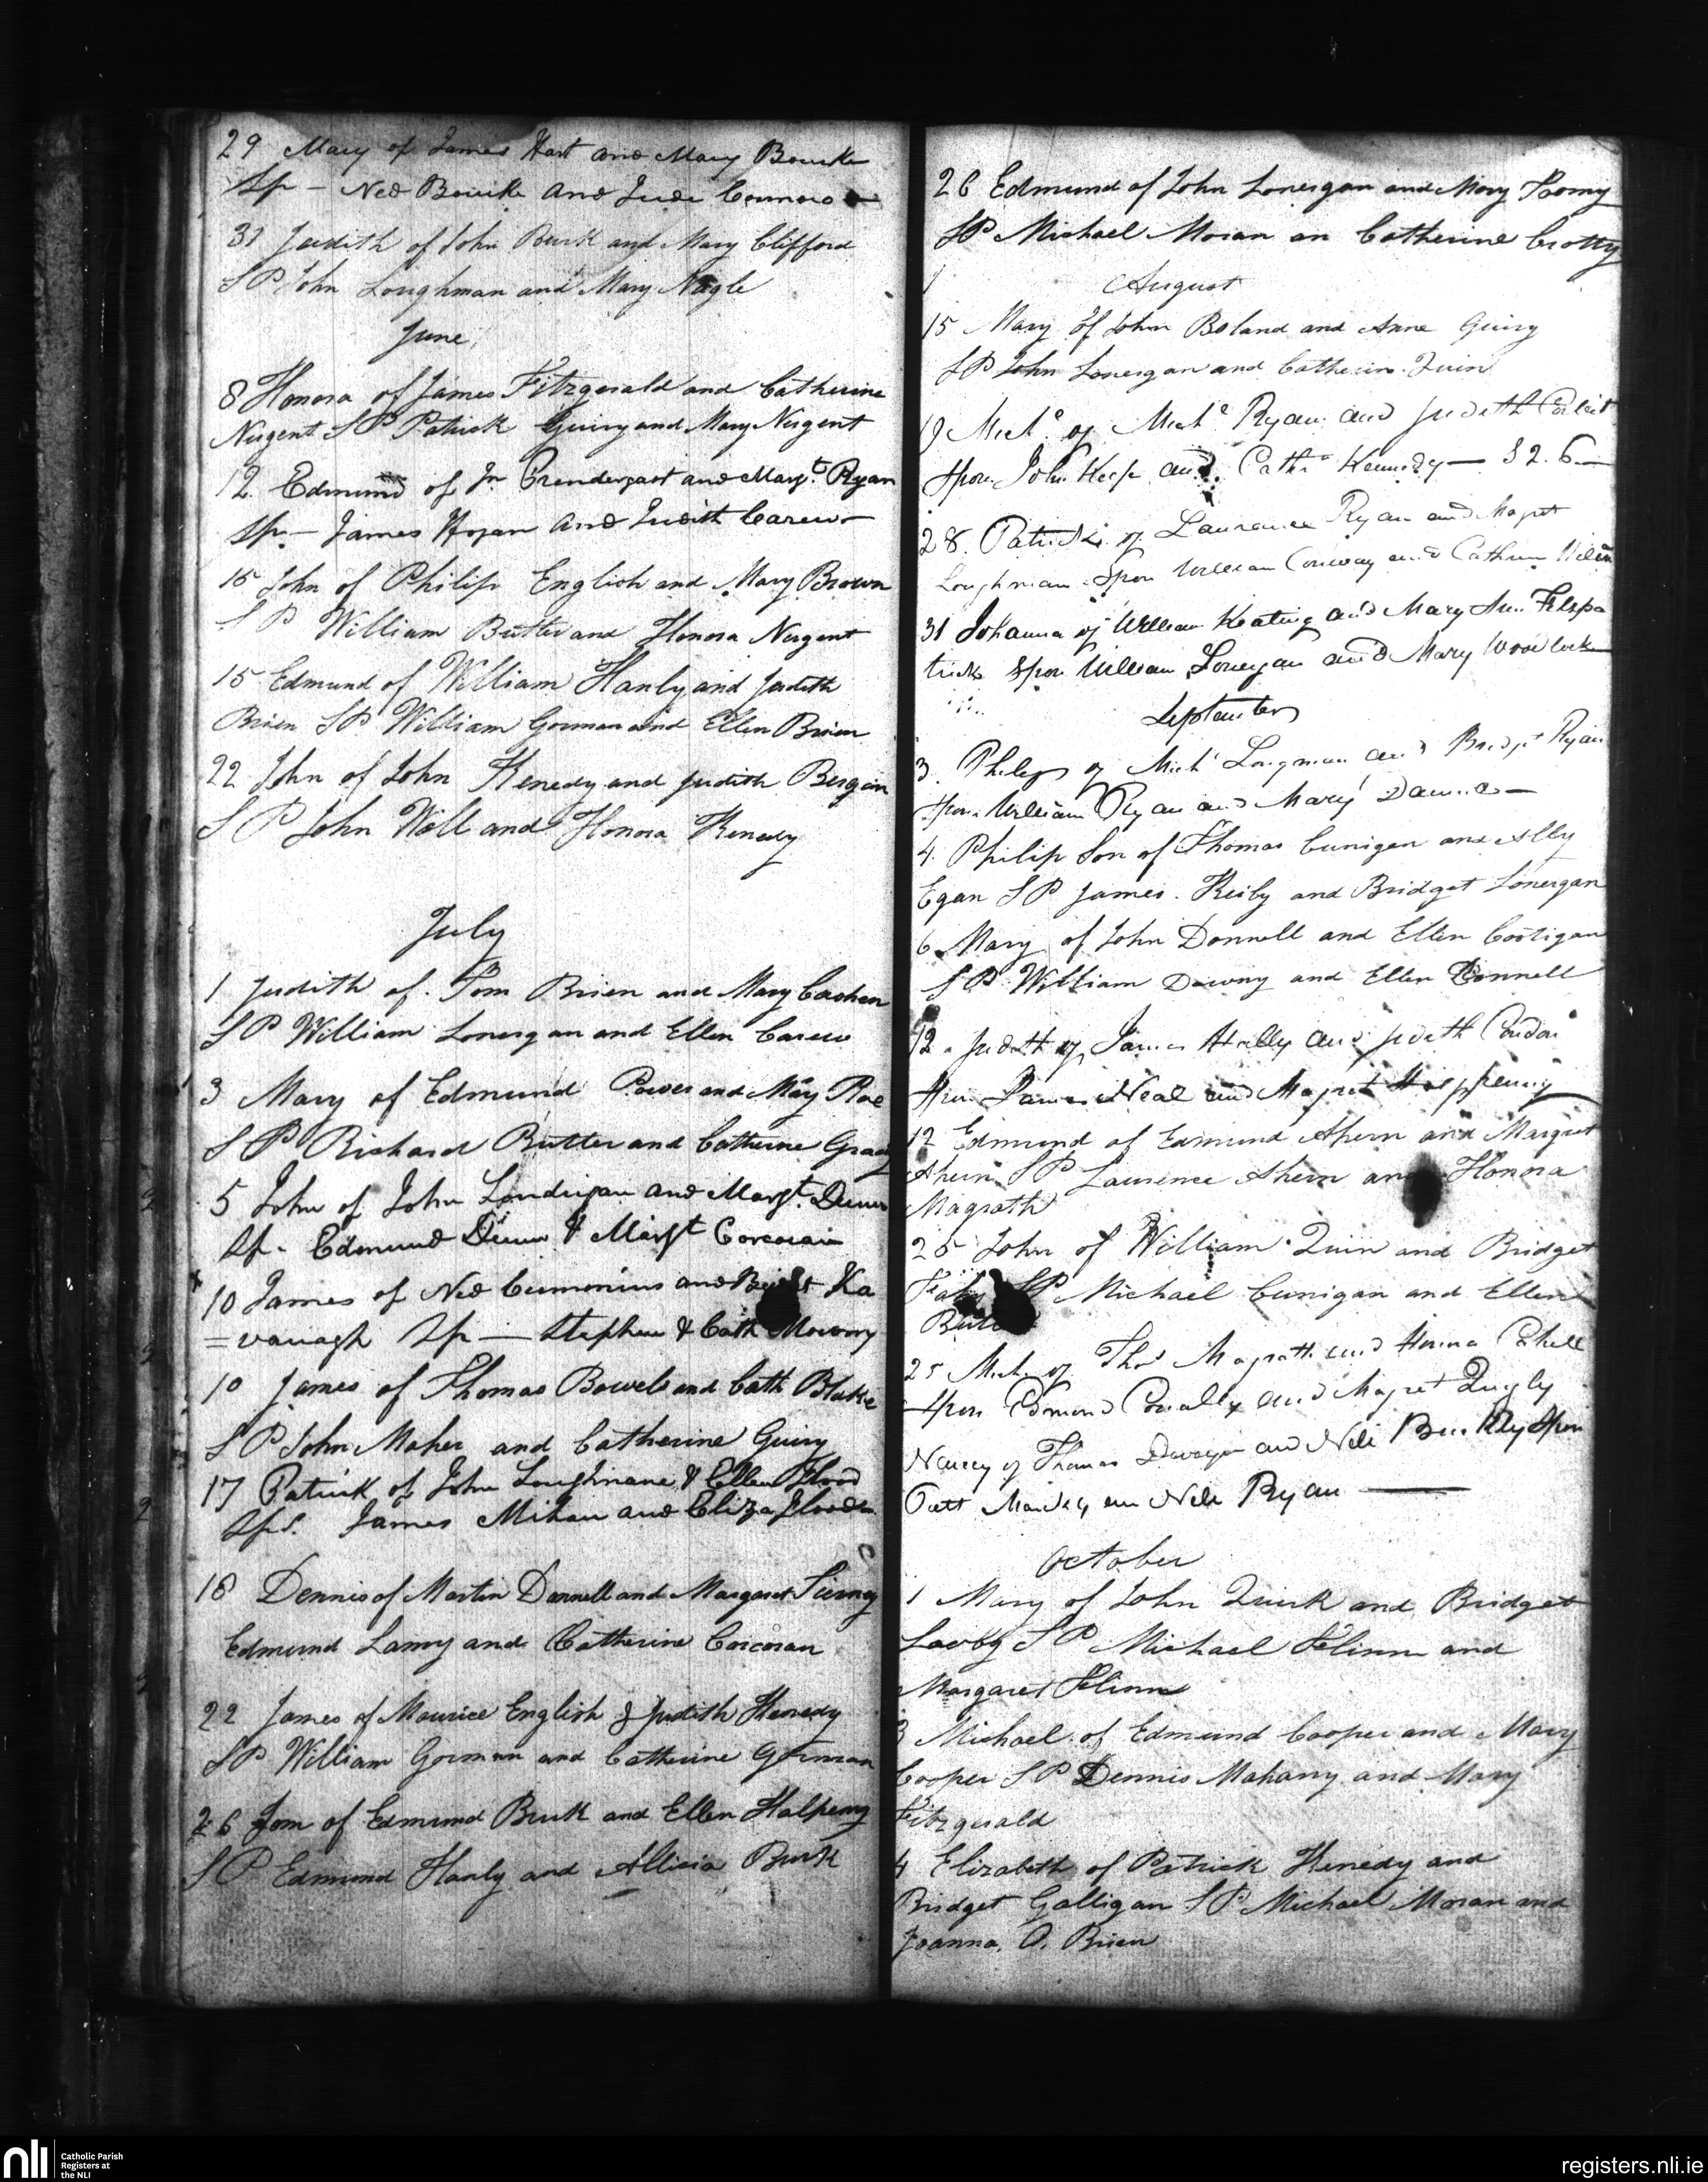 29 Mary of James Hart and Mary Bourke
Sp – Ned Bourke and Jude Connors
31 Judith of John Burk and Mary Clifford
SP John Loughman and Mary Nagle
June
8 Honora of James Fitzgerald and Catherine
Nugent SP Patrick Guiry and Mary Nugent
12 Edmund of Jn Prendergast and Margt. Ryan
Sp – James Hogan and Judith Carew –
15 John of Philip English and Mary Brown
SP William Butler and Honora Nugent
15 Edmund of William Hanly and Judith
Brien SP William Gorman and Ellen Brien
22 John of John Kenedy and Judith Bergin
SP John Woll and Honora Kenedy
July
1 Judith of Tom Brien and Mary Cashen
SP William Lonergan and Ellen Carew
3 Mary of Edmund Power and Mary Roe
SP Richard Butler and Catherine Grady
5 John of John Londrigan and Margt. Dunn
Sp. Edmund Dunn & Margt Corcoran
10 James of Ned Cummins and Ka
=vanagh Sp — Stephen & Cath Mowny
10 James of Thomas Bowels and Cath Blake
SP John Maher and Catherine Guiry
17 Patrick of John Loughnane & Ellen Flood
Sps. James Mihan and Eliza Flood
18 Dennis of Martin Donnell and Margaret Tierney
Edmund Lamy and Catherine Corcoran
22 James of Maurice English & Judith Kenedy
SP William Gorman and Catherine Gorman
26 Tom of Edmund Burk and Ellen Halpeny
SP Edmund Hanly and Allicia Burk
26 Edmund of John Lonergan and Mary
SP Michael Moran an Catherine Crotty
August
15 Mary of John Boland and Anne Guiry
SP John Lonergan and Catherin Quin
19 Michl of Michl Ryan and Judith Corbit
Spon. John Keefe and Cathe Kennedy — S 2. 6 —
28. Patrick of Laurance Ryan and Magret
Loughman Spon William Conway and Cathrin
31 Johanna of William Keating and Mary Ann Fitzpa
trick Spon William Lonergan and Mary Woodlock
September
3. Philip of Michl Longman and Bridget Ryan
Spon. William Ryan and Mary —
4. Philip Son of Thomas Cunigen and Ally
Egan SP James Keily and Bridget Lonergan
6 Mary of John Donnell and Ellen Costigan
SP William Downy and Ellen Donnell
12. Judith of James Hally and Judith Condon
Spon James Neal and Magret Halppenny
12 Edmund of Edmund Ahern and Margret
Ahern SP Laurence Ahern and Honora
Magrath
25 John of William Quin and Bridget
SP Michael Cunigan and Ellen
25 Mich of Thos Magrath and Honna Cahell
Spon Edmond Conally and Magret Quigly
Nancy of Thomas Dwyer and Nell Buckley Spon
Patt Mackey an Nele Ryan —
October
1 Mary of John Quirk and Bridget
Looby SP Michael Flinn and
Margaret Flinn
3 Michael of Edmund Cooper and Mary
Cooper SP Dennis Mahany and Mary
Fitzgerald
4 Elizabeth of Patrick Kenedy and
Bridget Galligan SP Michael Moran and
Joanna O. Brien
nli Catholic Parish
Registers at
the NLI
registers.nli.ie